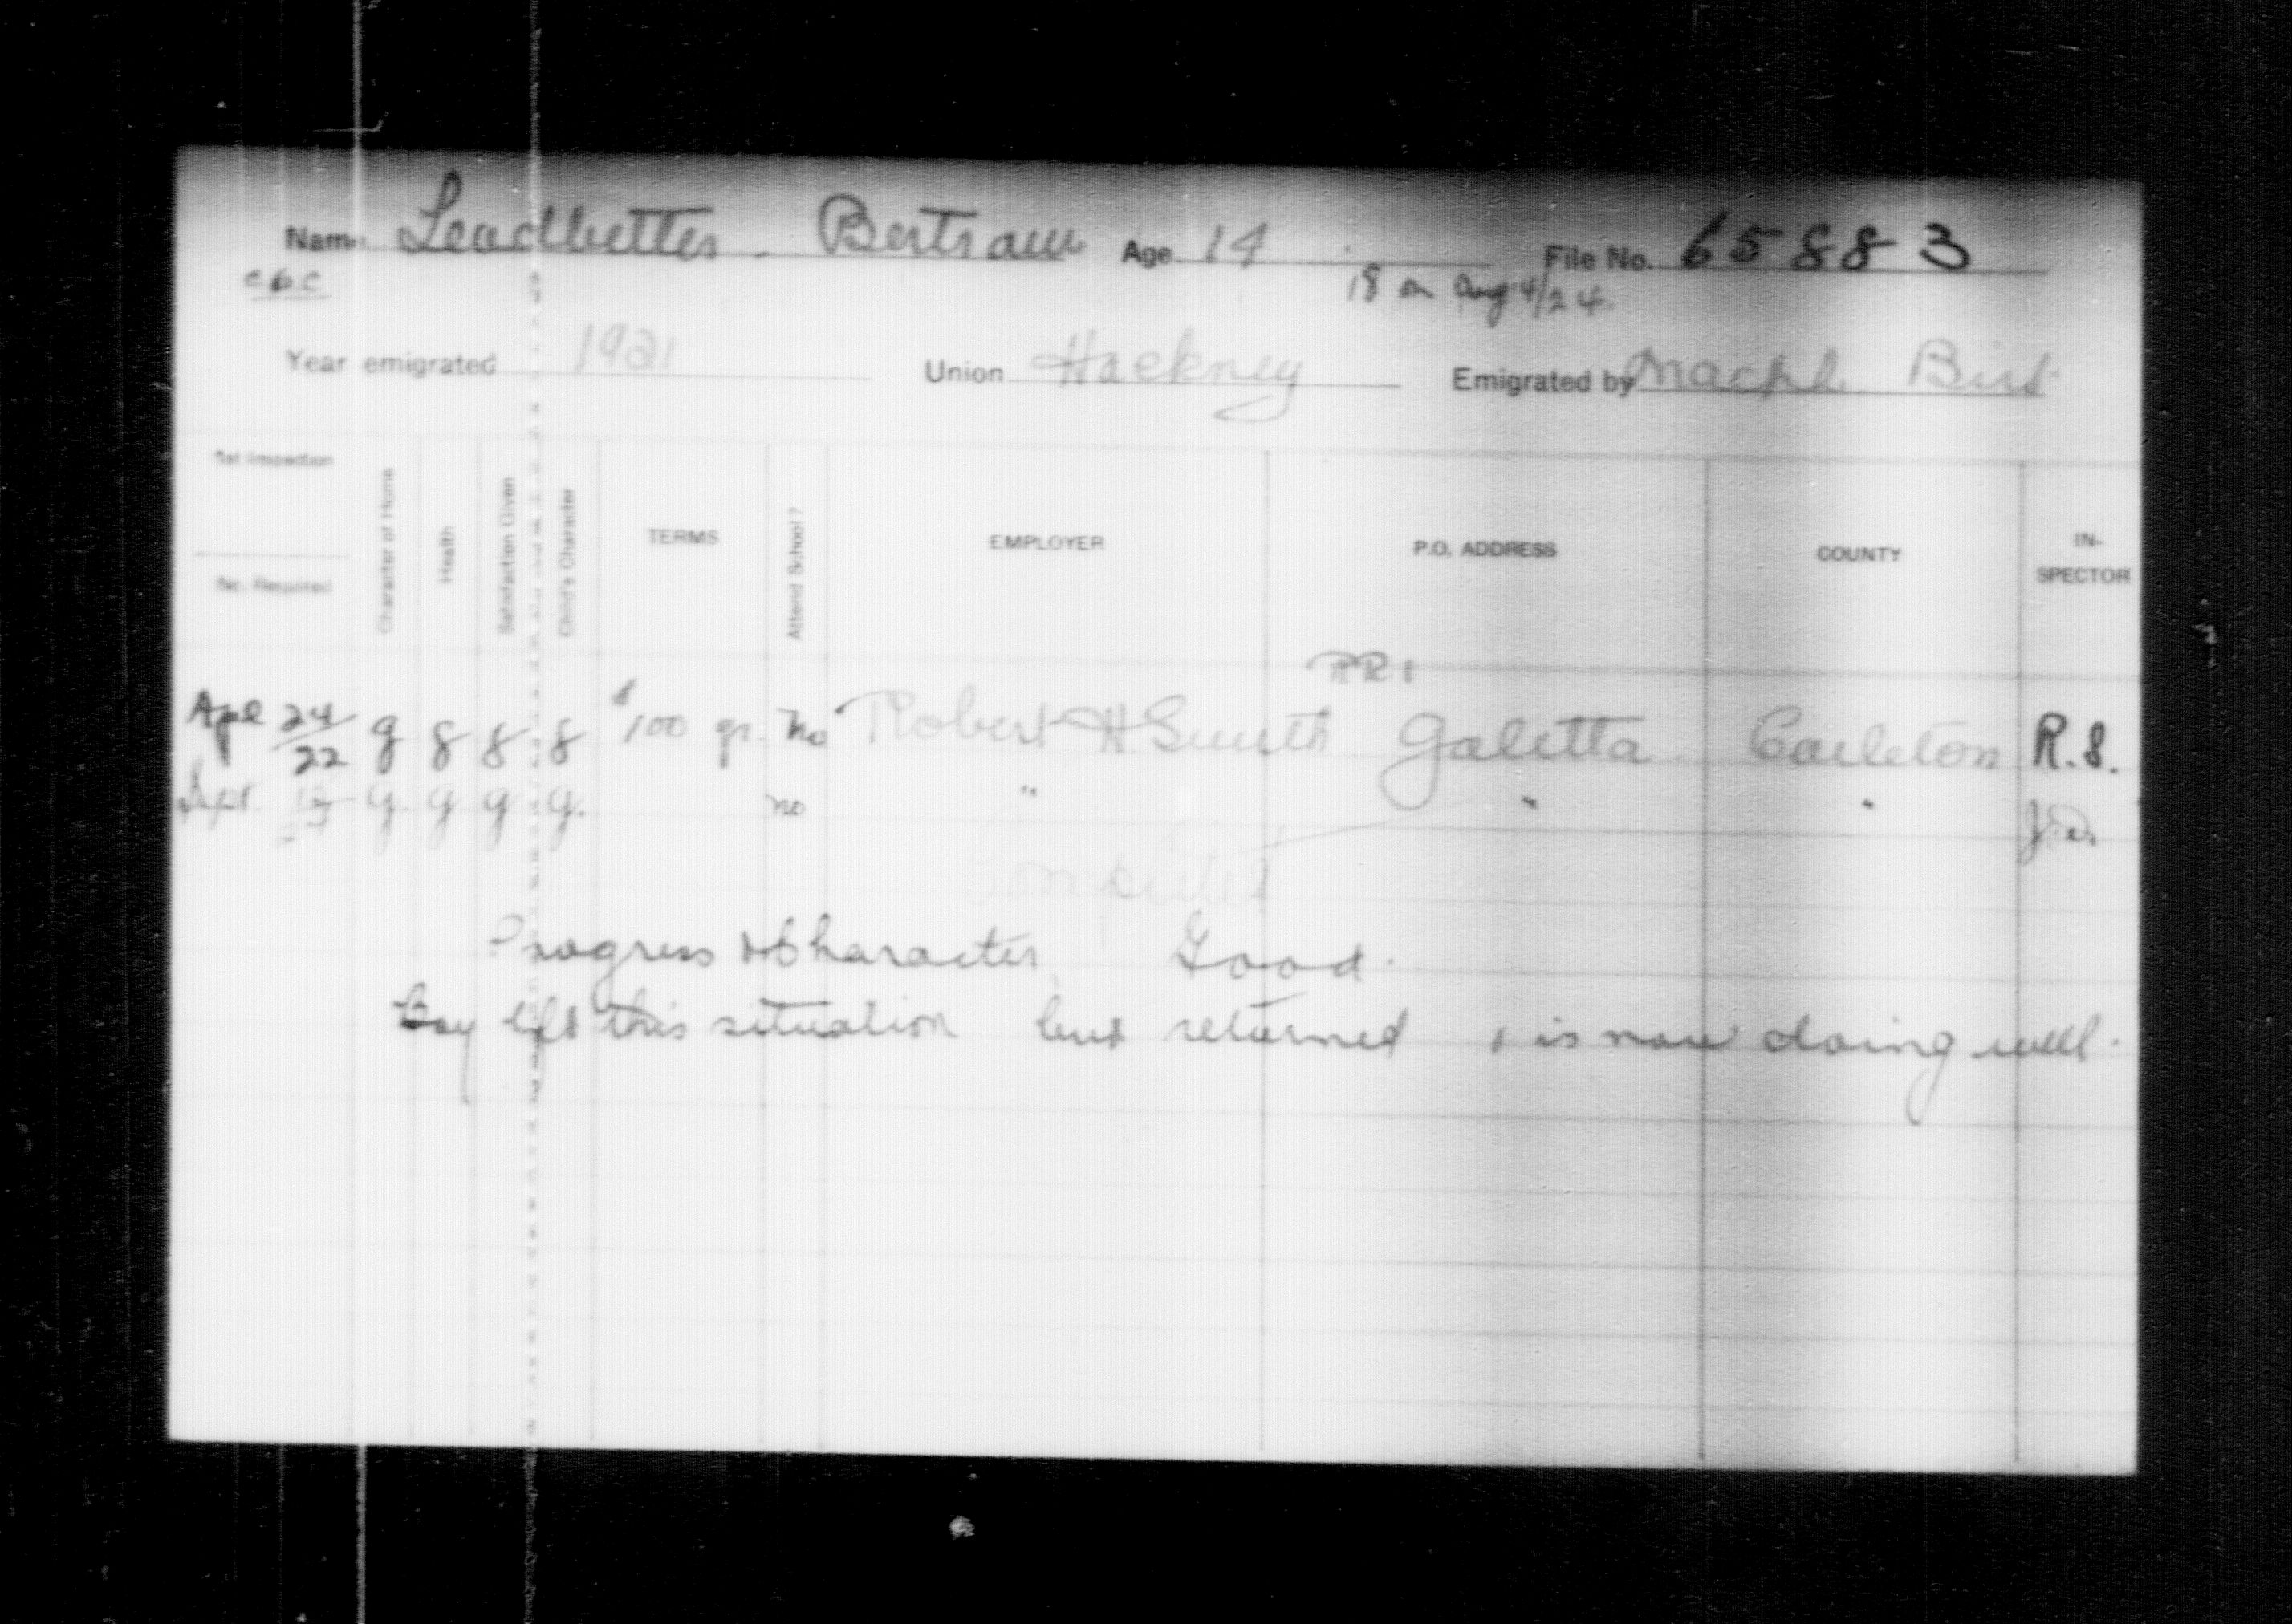 Name Leadbetter. Bertram Age 14 File No. 65883
18 on Aug 4/24.
Year emigrated 1921 Union Hackney Emigrated by Macph. Birt
1st Inspection
No. Required
Character of Home
Health
Satisfaction Given
Child's Character
TERMS
Attend School?
EMPLOYER
P.O. ADDRESS
COUNTY
IN-
SPECTOR
RR 1
Apl 24/22 g g g g $100 yr. no Robert H Smith Galetta Carleton R.S.
Sept. g. g g g. no " " "
Progress & Character Good.
Boy left this situation but returned & is now doing well.